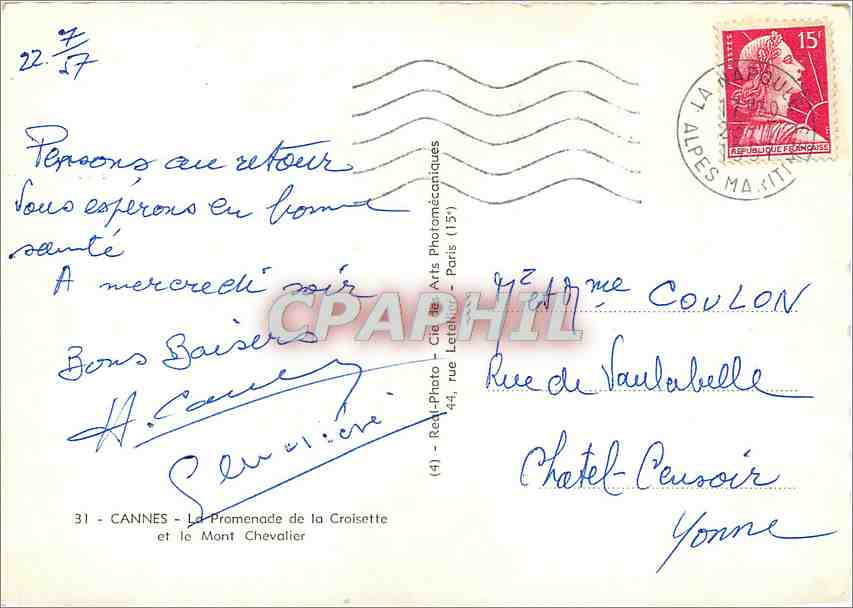 22. 7/57
Pensons au retour
Vous espérons en bonne
santé
A mercredi soir
Bons Baisers
Geneviève
31 - CANNES - La Promenade de la Croisette
et le Mont Chevalier
(4) - Real-Photo - Cie des Arts Photomécaniques
44, rue Letellier - Paris (15e)
CPAPHIL
POSTES
15F
REPUBLIQUE FRANÇAISE
LA NAPOULE
ALPES MARITIMES
Mr et Mme COULON
Rue de Vaulabelle
Chatel-Censoir
Yonne